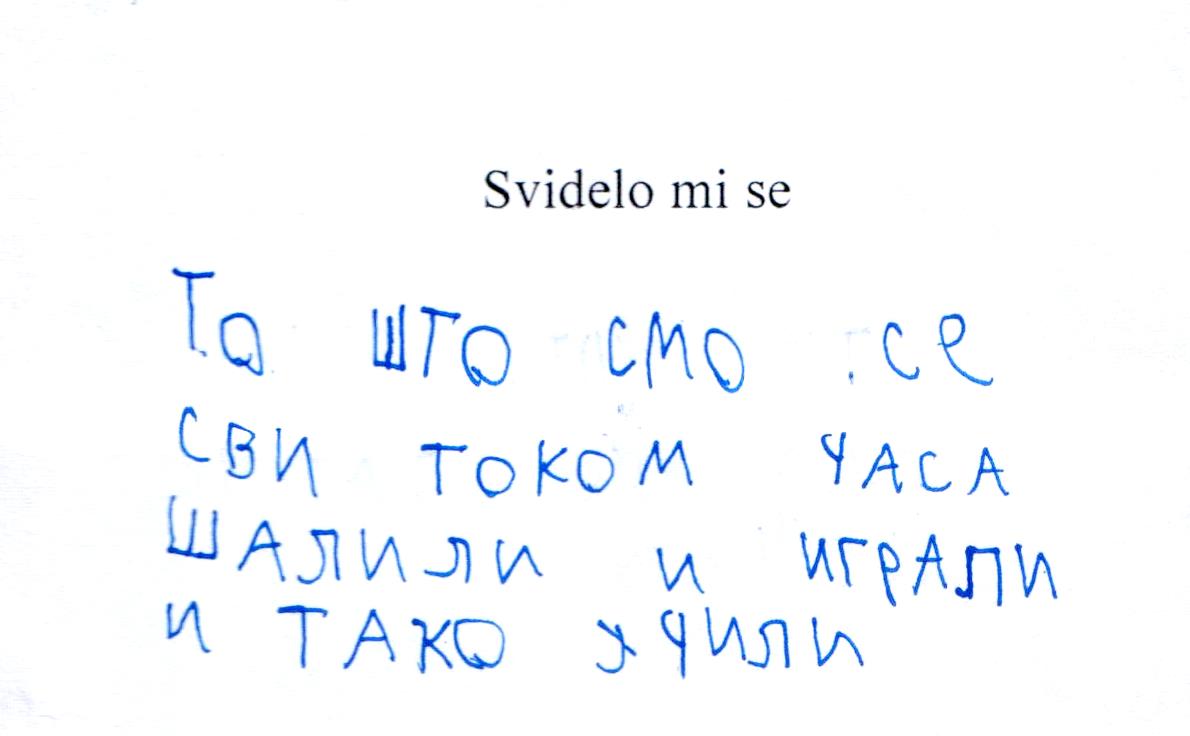 Svidelo mi se
То што смо се
СВИ ТОКОМ ЧАСА
ШАЛИЛИ И ИГРАЛИ
И ТАКО УЧИЛИ